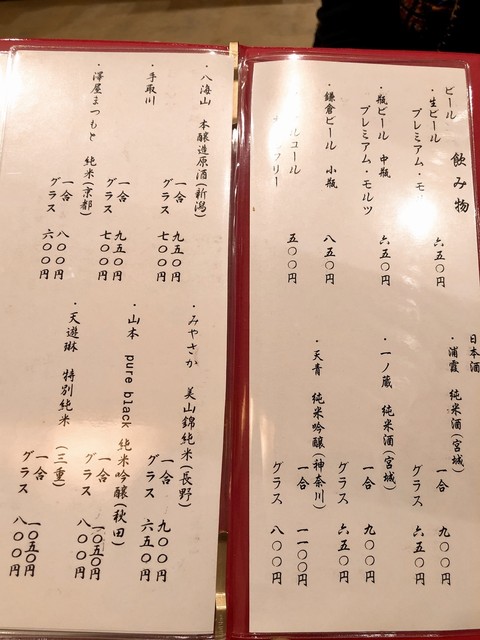 飲み物
ビール
・生ビール
プレミアム・モ
六五〇円
・瓶ビール 中瓶
プレミアム・モルツ
六五〇円
鎌倉ビール 小瓶
八五〇円
ルコール
リー
五〇〇円
日本酒
・浦霞 純米酒(宮城)
一合 九〇〇円
グラス 六五〇円
・一ノ蔵 純米酒(宮城)
一合 九〇〇円
グラス 六五〇円
・天青 純米吟醸(神奈川)
一合 一一〇〇円
グラス 八〇〇円
・八海山 本醸造原酒(新潟)
一合 九五〇円
グラス 七〇〇円
・手取川
一合 九五〇円
グラス 七〇〇円
・澤屋まつもと 純米(京都)
一合 八〇〇円
グラス 六〇〇円
・みやさか 美山錦純米(長野)
一合 九〇〇円
グラス 六五〇円
・山本 pure black 純米吟醸(秋田)
一合 一〇五〇円
グラス 八〇〇円
・天遊琳 特別純米 (三重)
一合 一〇五〇円
グラス 八〇〇円